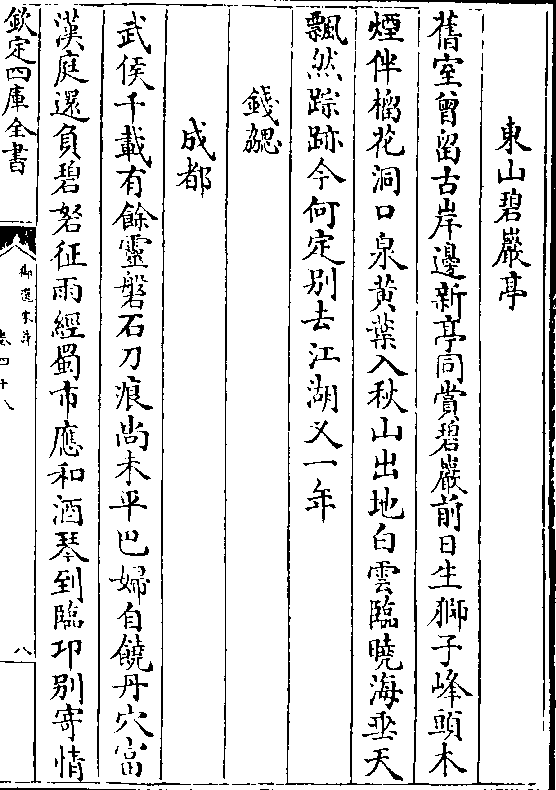 東山碧巖亭
舊室曾留古岸邊新亭同賞碧巖前日生獅子峰頭木
煙伴榴花洞口泉黄葉入秋山出地白雲臨曉海垂天
飄然踪跡今何定别去江湖又一年
錢勰
成都
武侯千載有餘靈磐石刀痕尚未平巴婦自饒丹穴富
漢庭還負碧砮征雨經蜀市應和酒琴到臨卭别寄情
欽定四庫全書
御選宋詩
卷四十八
八